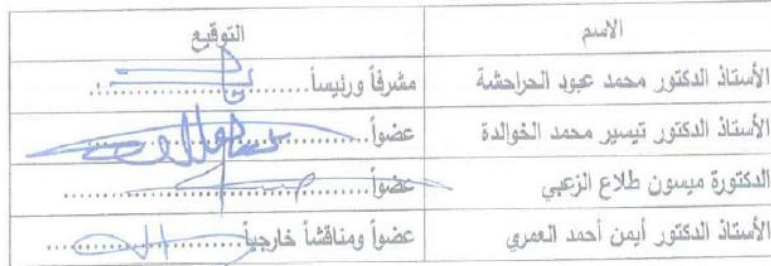 الاسم التوقيع
الأستاذ الدكتور محمد عبود الحراحشة مشرفاً ورئيساً
الأستاذ الدكتور تيسير محمد الخوالدة عضواً
الدكتورة ميسون طلاع الزعبي عضواً
الأستاذ الدكتور أيمن أحمد العمري عضواً ومناقشاً خارجياً